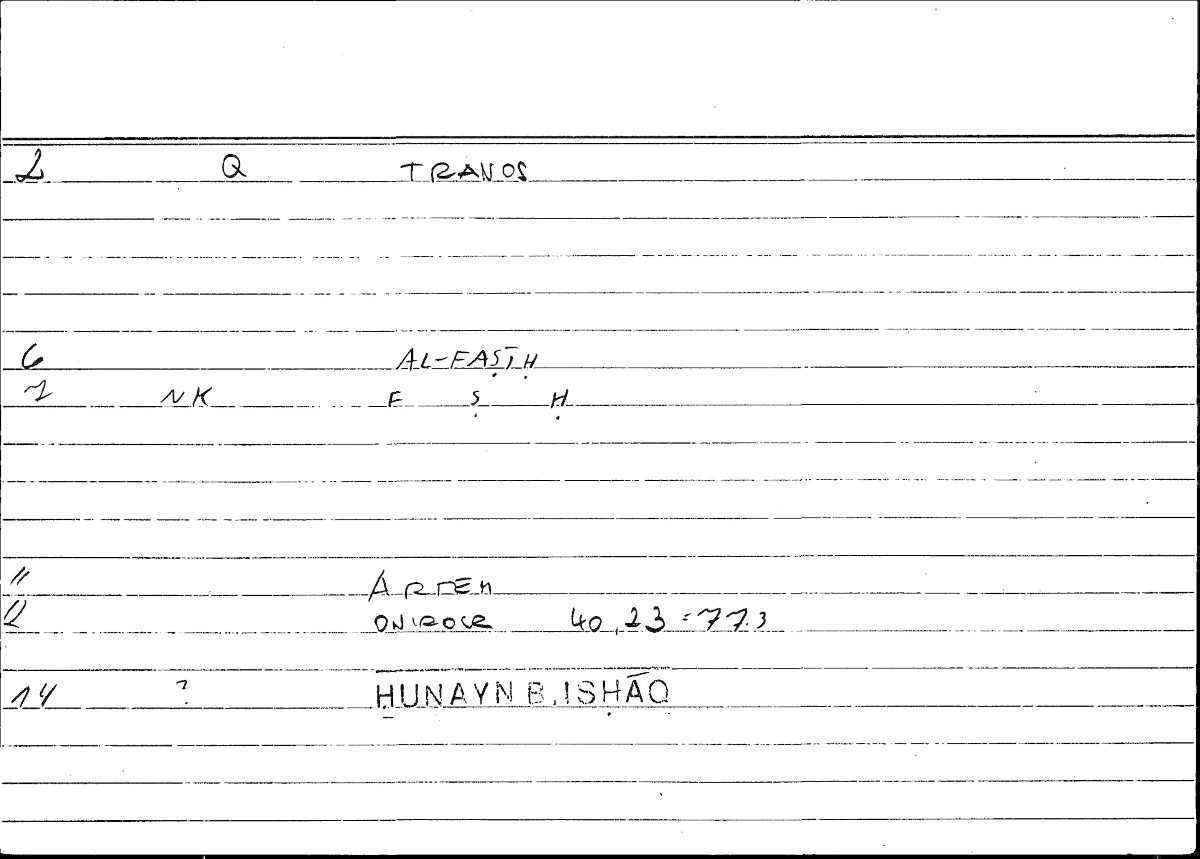 2 Q TRANOS
6 AL-FAṢĪḤ
7 NK F Ṣ Ḥ
11 ARTEM
12 ONIROCR 40,23=77.3
14 ? ḤUNAYN B. ISḤĀQ